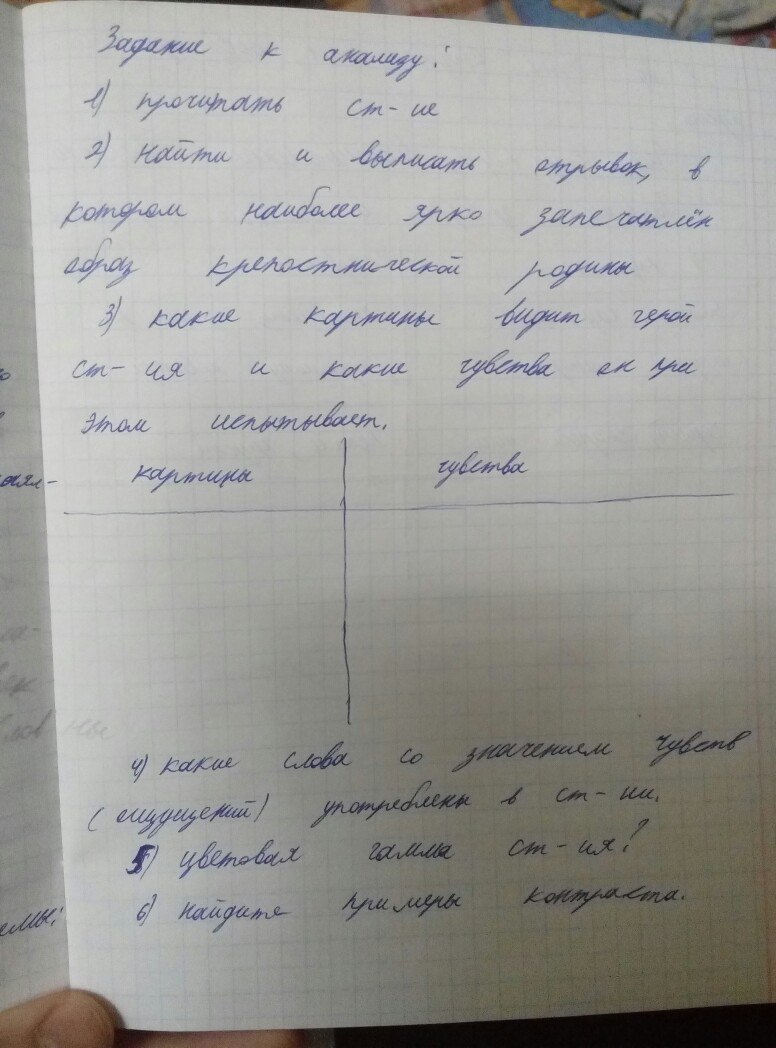 Задание к анализу:
1) прочитать ст-ие
2) найти и выписать отрывок, в
котором наиболее ярко запечатлён
образ крепостнической родины
3) какие картины видит герой
ст-ия и какие чувства он при
этом испытывает.
картины чувства
4) какие слова со значением чувств
(ощущений) употреблены в ст-ии.
5) цветовая гамма ст-ия?
6) найдите примеры контраста.